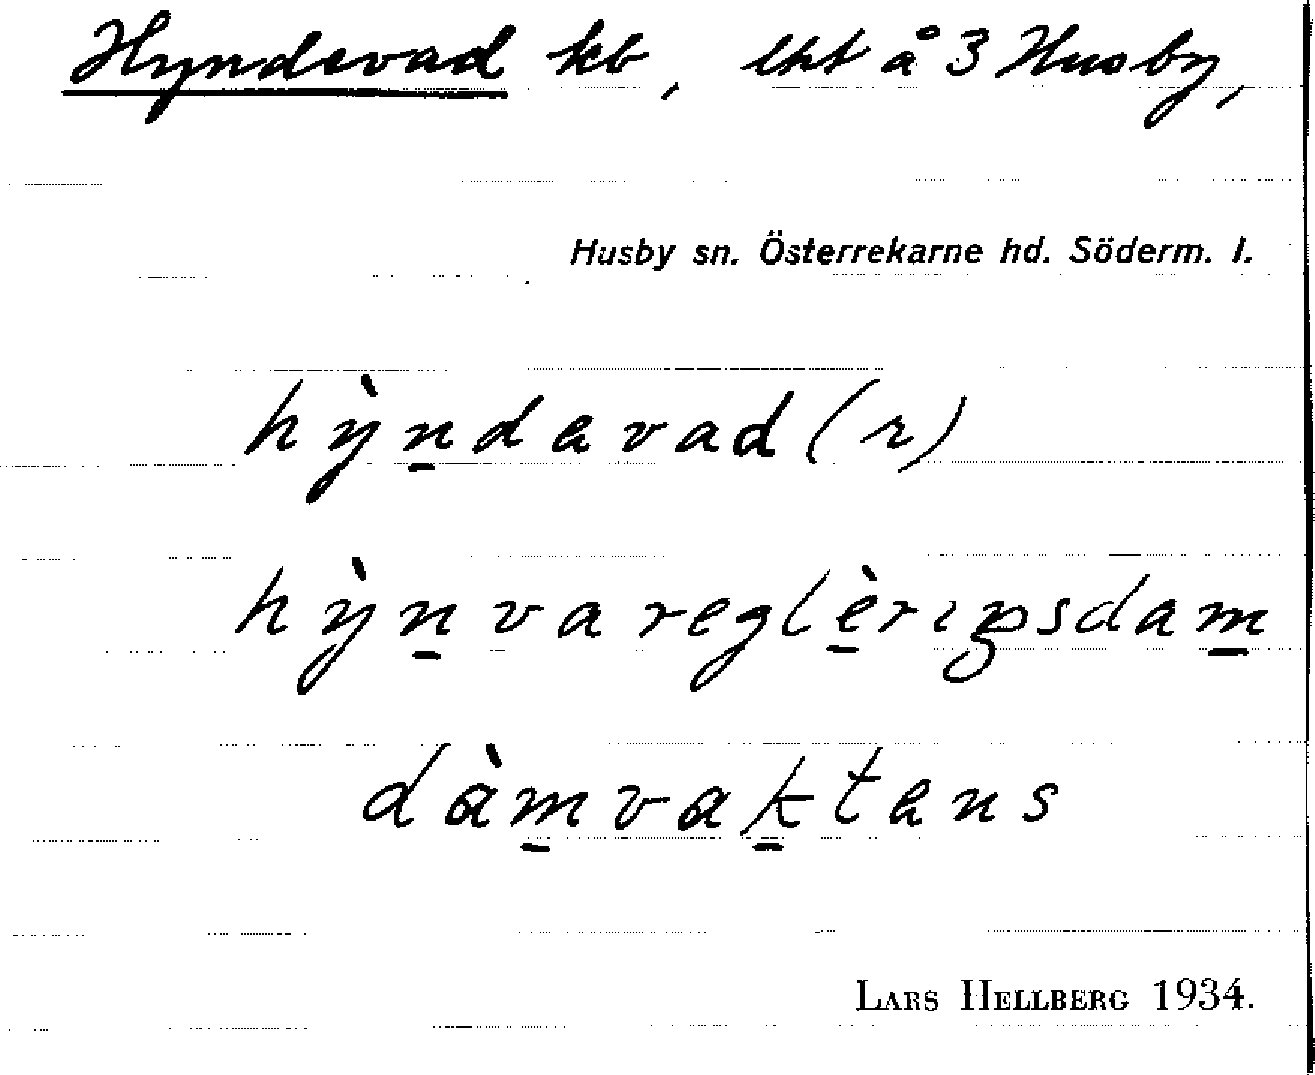 Hyndevad kb, lht å 3 Husby,
Husby sn. Österrekarne hd. Söderm. l.
hỳn̲davad(r)
hỳn̲vareglè̲rıŋsdam̲
dàm̲vak̲tens
LARS HELLBERG 1934.